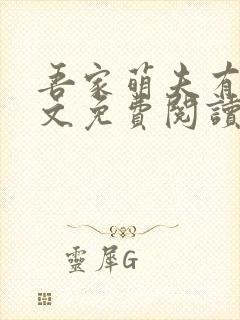 吾家萌夫有
文免費閱讀
靈犀G